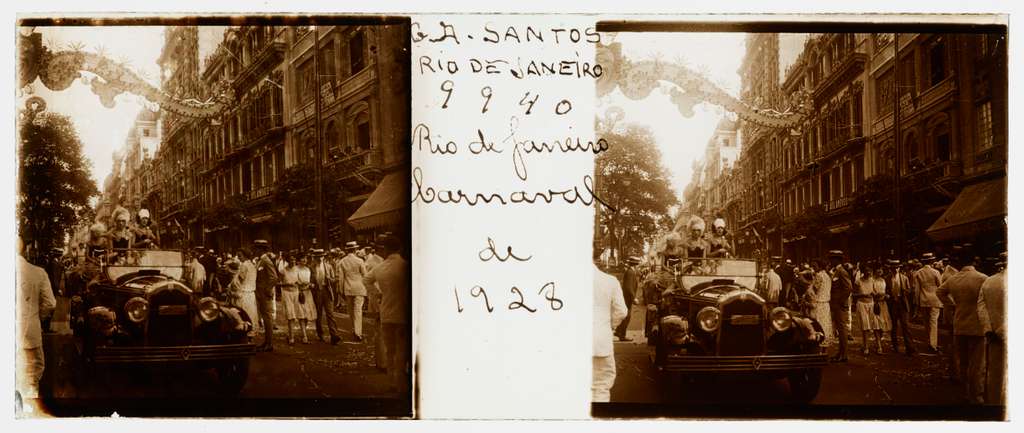 G.A. SANTOS
RIO DE JANEIRO
9940
Rio de Janeiro
Carnaval
de
1928